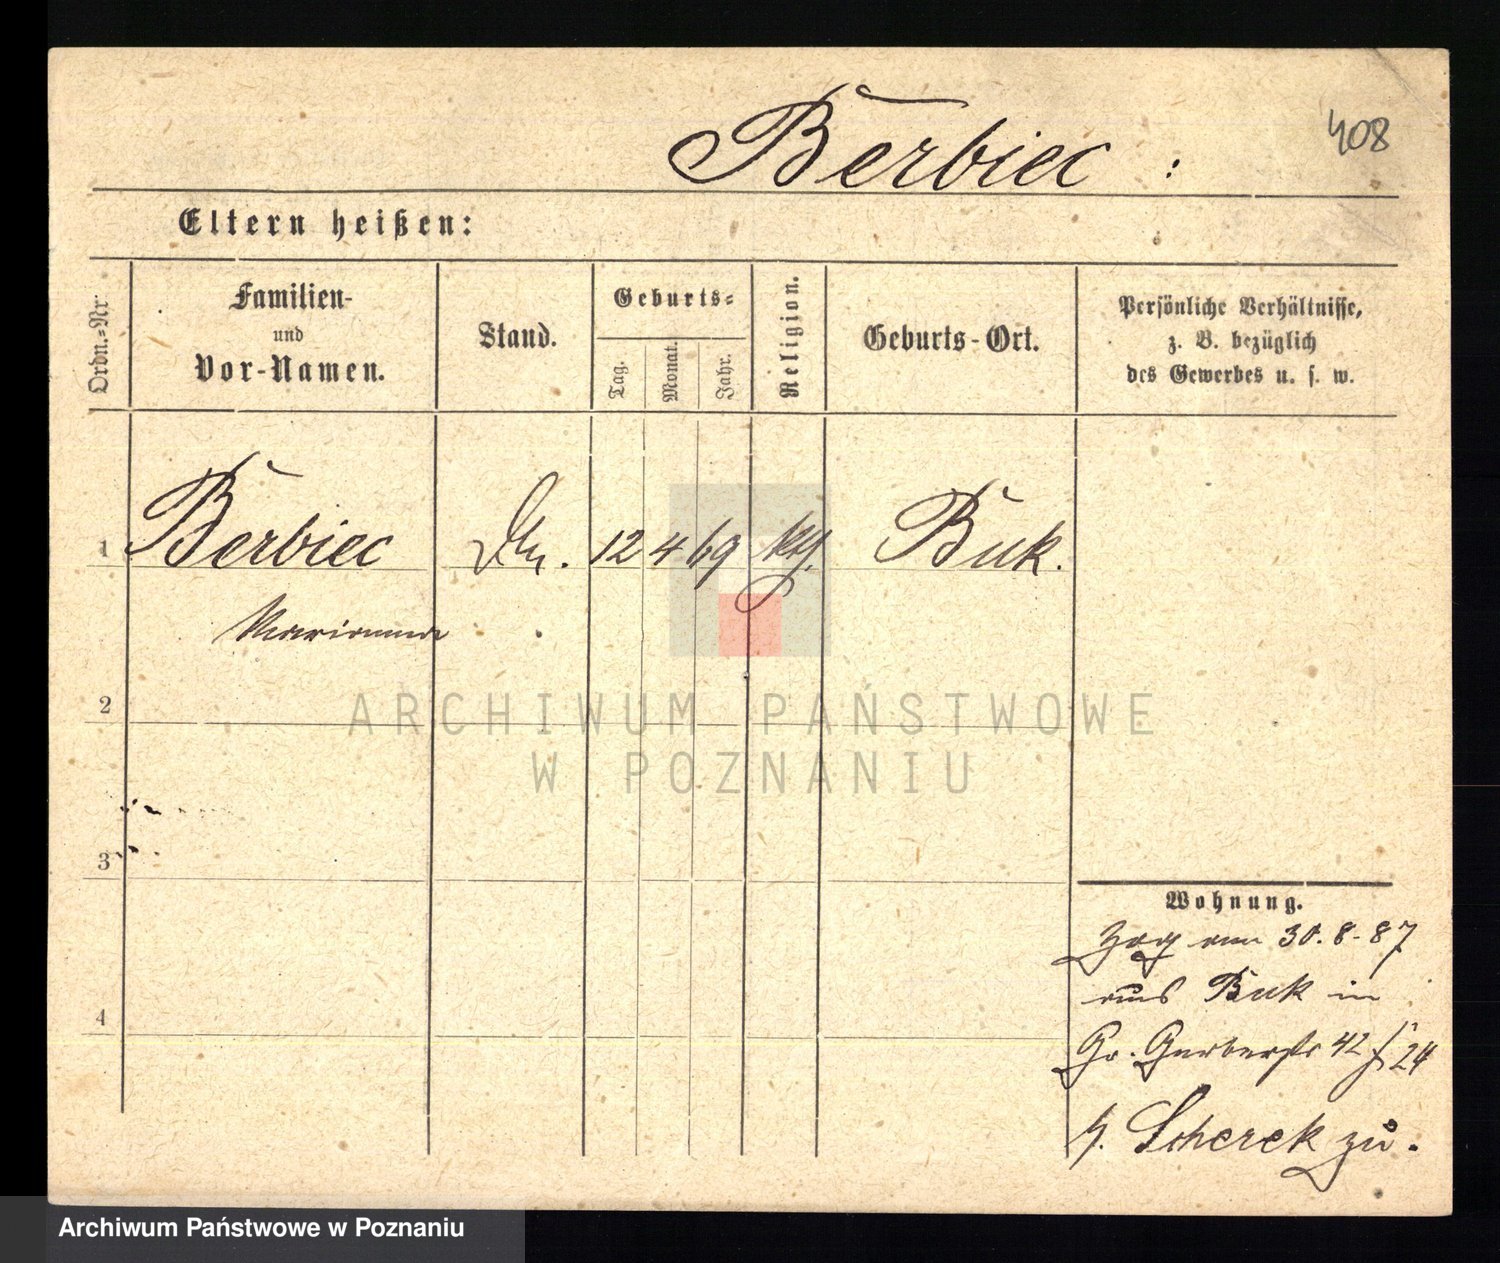 Berbiec :
408
Eltern heißen:
Ordn.=Nr.
Familien-
und
Vor-Namen.
Stand.
Geburts=
Tag.
Monat.
Jahr.
Religion.
Geburts-Ort.
Persönliche Verhältnisse,
z. B. bezüglich
des Gewerbes u. s. w.
1 Berbiec 12 4 69 kth. Buk.
Marianna
2
3
4
Wohnung.
Zog am 30.8.87
aus Buk in
Gr. Gerberstr 42
24
Scherek zu.
ARCHIWUM PAŃSTWOWE
W POZNANIU
Archiwum Państwowe w Poznaniu